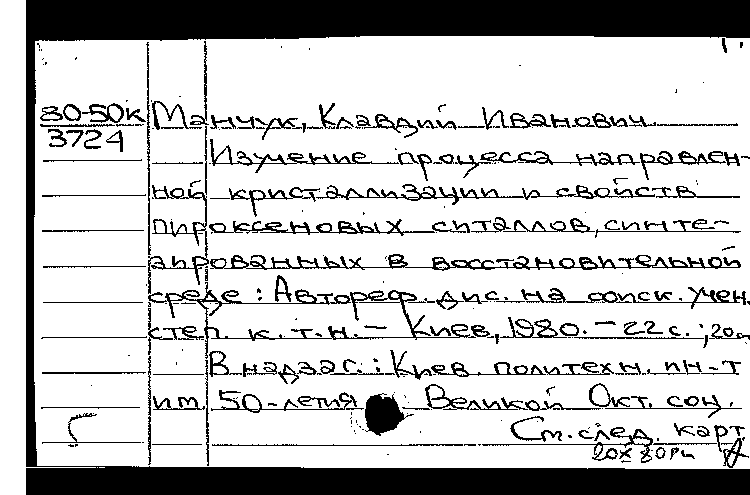 80-50к
3724
Манчук, Клавдий Иванович.
Изучение процесса направлен-
ной кристаллизации и свойств
пироксеновых ситаллов, синте-
зированных в восстановительной
среде: Автореф. дис. на соиск. учен.
степ. к. т. н. — Киев, 1980. — 22 с.; 20см
В надзаг.: Киев. политехн. ин-т
им. 50-летия Великой Окт. соц.
См. след. карт.